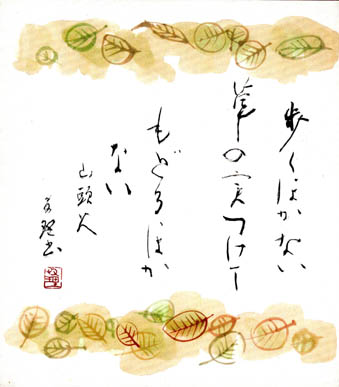 歩くほかない
草の実つけて
もどるほか
ない
山頭火
書